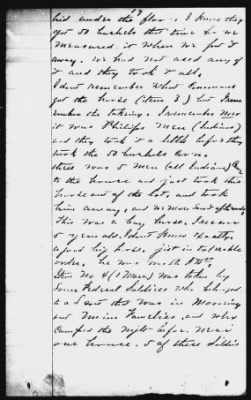 hid under the floor. I know they
got 50 bushels that time for we
measured it when we put it
away. We had not used any of
it and they took it all.
I dont remember what
got the horse (Item 3) but I
the taking. I remember
it was Phillips men (Indians)
and they took it a little before they
took the 50 bushels corn.
There was 5 men (all Indians)
to the house and just took this
horse out of the lot, and took
him away, and we never
This was a bay horse, I
5 years old. I dont know exactly.
a good big horse, just in tolerable
order. he was worth
Item No 4 (1 Mare) was taken by
some Federal Soldiers who belonged
to a that was in
and Families, and who
camped the night before near
our house. 5 of these Soldiers